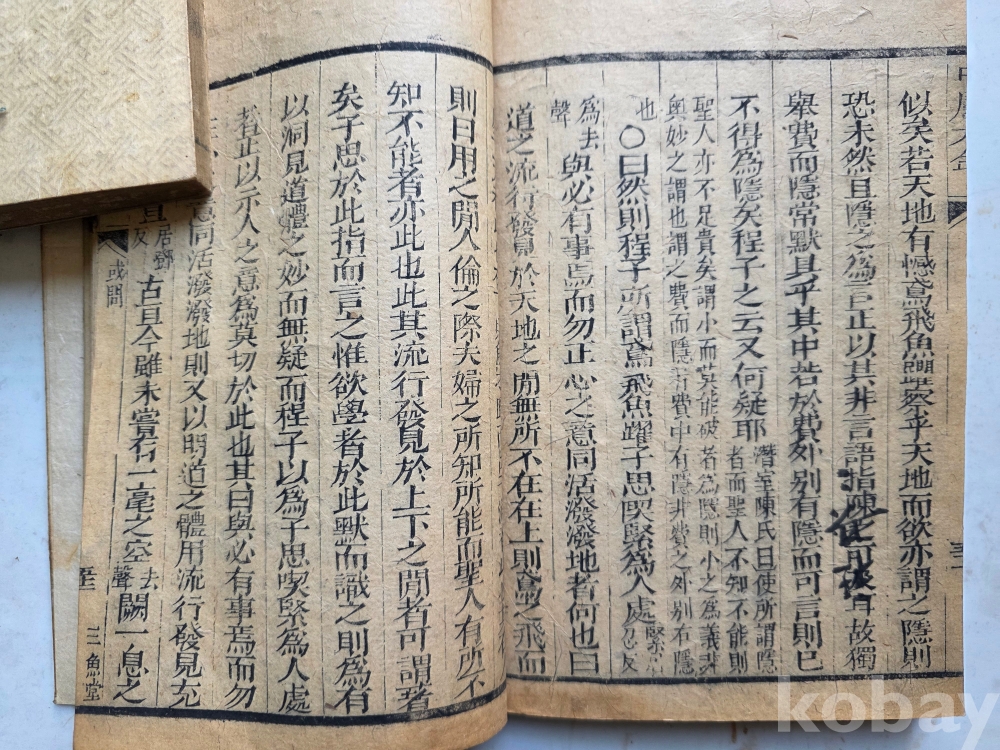 似矣若天地有憾鳶飛魚躍察乎天地而欲亦謂之隱則
恐未然且隱之為言正以其非言語指陳耳故獨
舉費而隱常默具乎其中若於費外別有隱而可言則已
不得為隱矣程子之云又何疑耶
潛室陳氏曰使所謂隱
者而聖人不知不能則
聖人亦不足貴矣謂小而莫能破者為隱則小之為義非
奧妙之謂也謂之費而隱者費中有隱非費之外別有隱
也○曰然則程子所謂鳶飛魚躍子思喫緊為人處
為去
聲
與必有事焉而勿正心之意同活潑潑地者何也曰
道之流行發見於天地之間無所不在在上則鳶之飛而
則日用之間人倫之際夫婦之所知所能而聖人有所不
知不能者亦此也此其流行發見於上下之間者可謂著
矣子思於此指而言之惟欲學者於此默而識之則為有
以洞見道體之妙而無疑而程子以為子思喫緊為人處
者正以示人之意為莫切於此也其曰與必有事焉而勿
意同活潑潑地則又以明道之體用流行發見充
居鄧
反
古亘今雖未嘗有一毫之空去聲闕一息之
或問
三魚堂
kobay